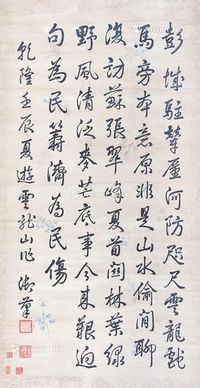 彭城駐輦何防咫尺雲龍戲
馬旁本意原非是山水偷閒聊
復訪蘇張翠峰夏首林葉綠
野風清泛麥芒底事今來艱迫
句為民籌濟為民傷
乾隆壬辰夏遊雲龍山作御筆